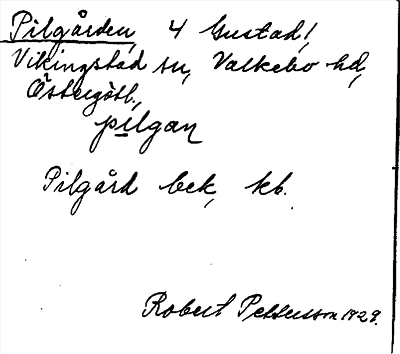 Pilgården, 4 Gustad,
Vikingstad sn, Valkebo hd,
Östergötl.,
pilgan
Pilgård bek, kb.
Robert Pettersson 1929.